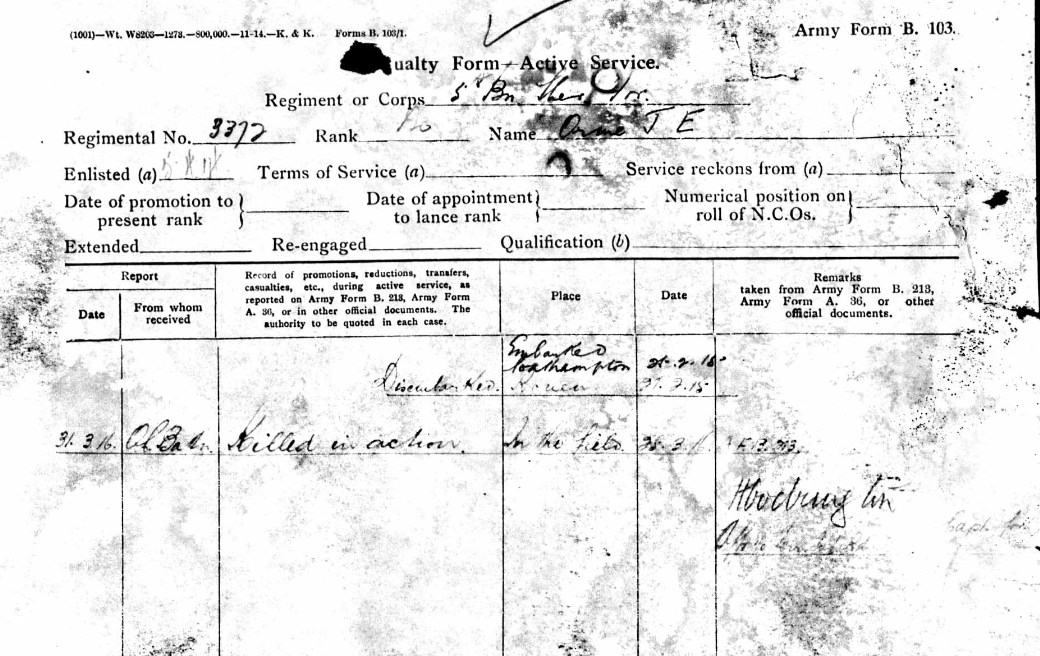 (1001)—Wt. W8203—1273.—800,000.—11-14.—K. & K. Forms B. 103/1.
Army Form B. 103.
ualty Form—Active Service.
Regiment or Corps 5th Bn
Regimental No. 3372 Rank Name Orme J E
Enlisted (a) Terms of Service (a) Service reckons from (a)
Date of promotion to present rank } Date of appointment to lance rank } Numerical position on roll of N.C.Os. }
Extended Re-engaged Qualification (b)
Report
Date
From whom received
Record of promotions, reductions, transfers,
casualties, etc., during active service, as
reported on Army Form B. 213, Army Form
A. 36, or in other official documents. The
authority to be quoted in each case.
Place
Date
Remarks
taken from Army Form B. 213,
Army Form A. 36, or other
official documents.
Embarked
Southampton
Disembarked. Rouen
31.3.16. Killed in action. In the field